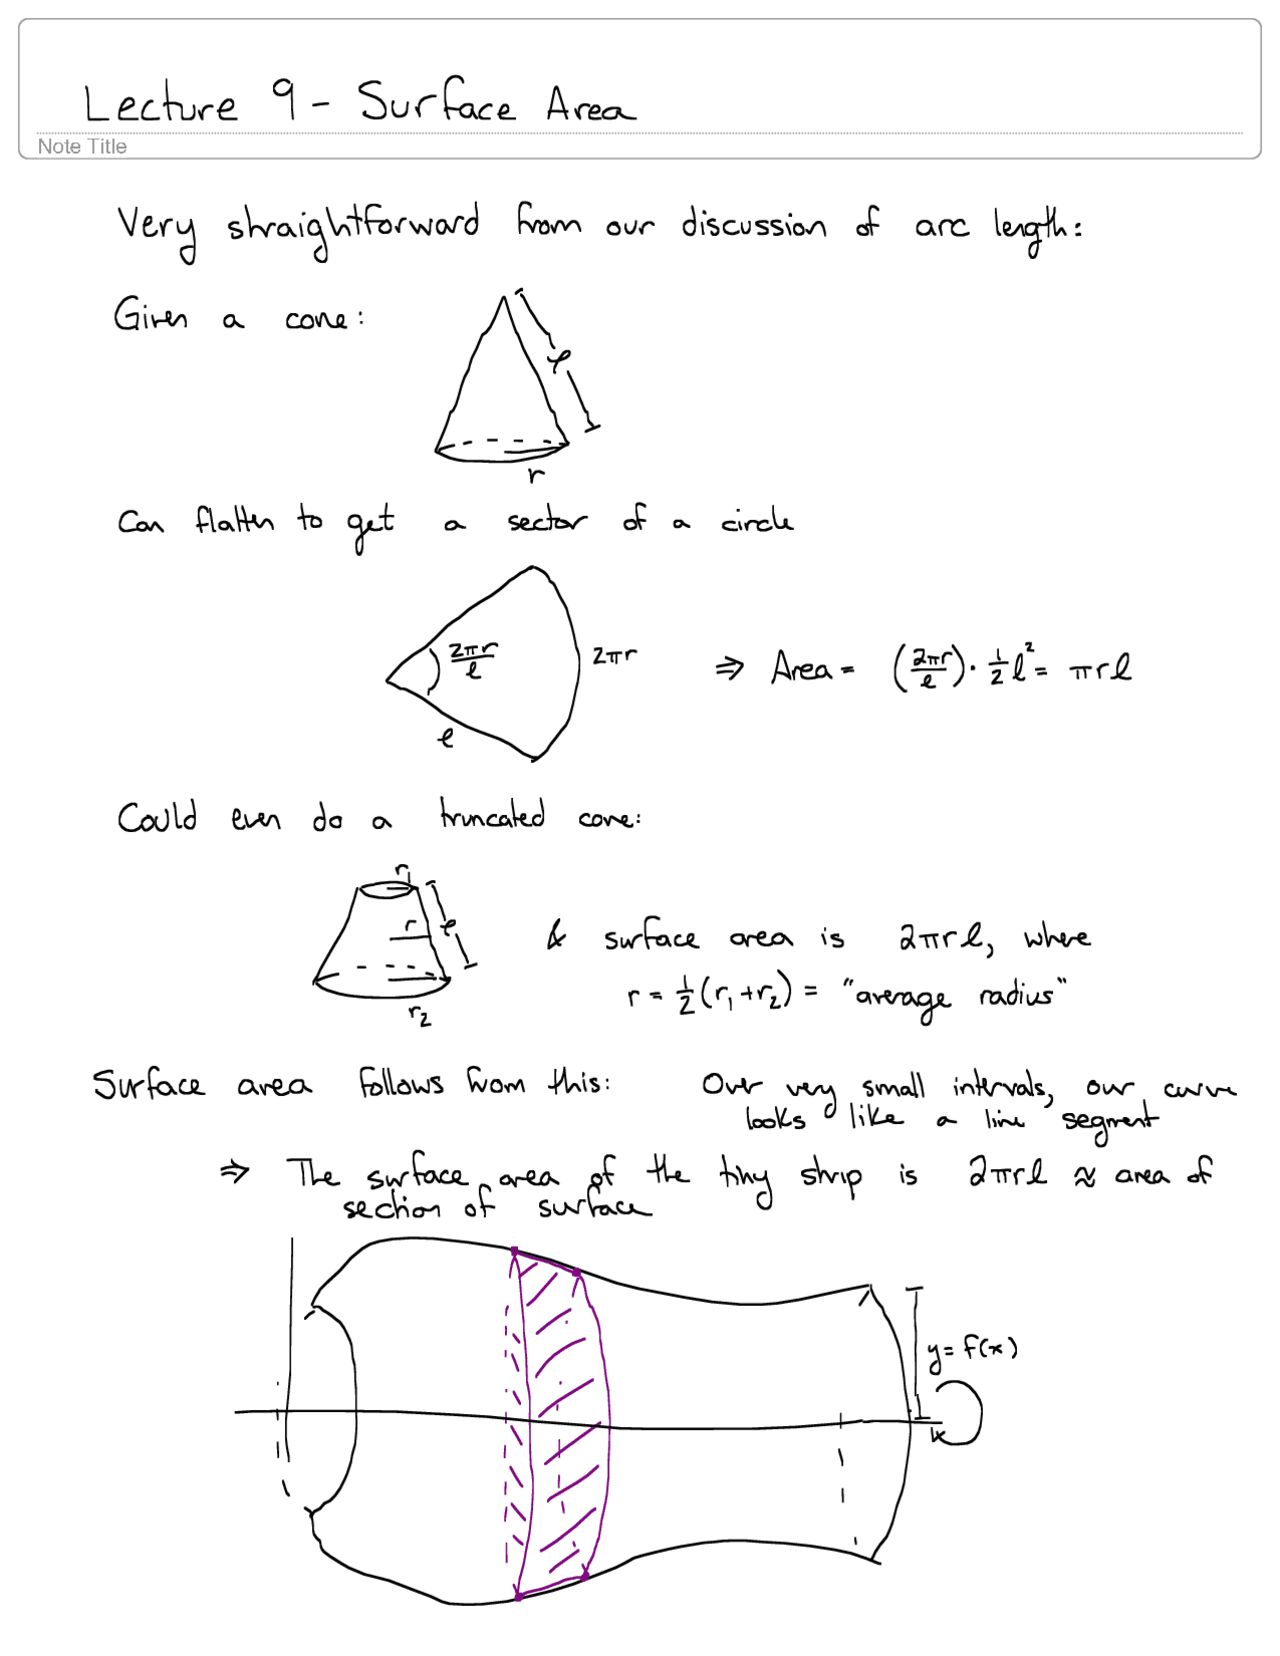 Lecture 9 - Surface Area
Note Title
Very straightforward from our discussion of arc length:
Given a cone:
l
r
Can flatten to get a sector of a circle
2πr/l
2πr
l
⇒ Area = (2πr/l) · 1/2 l² = πrl
Could even do a truncated cone:
r₁
r
l
r₂
& surface area is 2πrl, where
r = 1/2 (r₁ + r₂) = "average radius"
Surface area follows from this: Over very small intervals, our curve
looks like a line segment
⇒ The surface area of the tiny strip is 2πrl ≈ area of
section of surface
y = f(x)